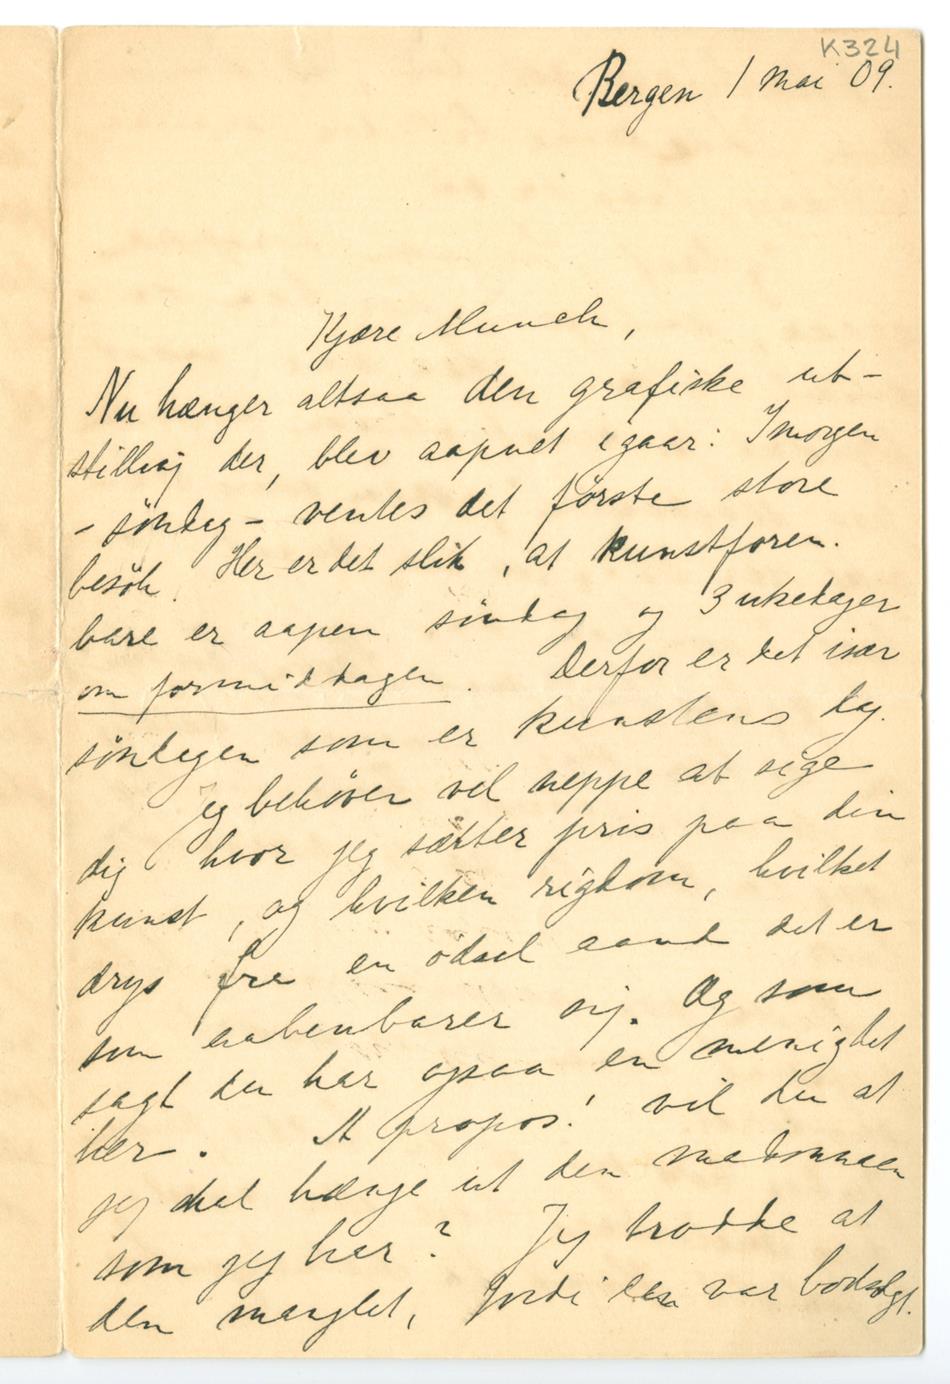 K324
Bergen 1 mai 09.
Kjære Munch,
Nu hænger altsaa den grafiske ut-
stilling der, blev aapnet igaar: Imorgen
- söndag - ventes det første store
besök. Her er det slik, at kunstforen.
bare er aapen söndag og 3 ukedager
om formiddagen. Derfor er det især
söndagen som er kunstens dag.
Jeg behöver vel neppe at sige
dig hvor jeg sætter pris paa din
kunst, og hvilken rigdom, hvilket
drys fra en ödsel aand det er
som aabenbarer sig. Og som
sagt du har ogsaa en menighet
her. A propos! vil du at
jeg skal hænge ut den madonnaen
som jeg har? Jeg trodde at
den manglet, fordi den var bortsolgt.